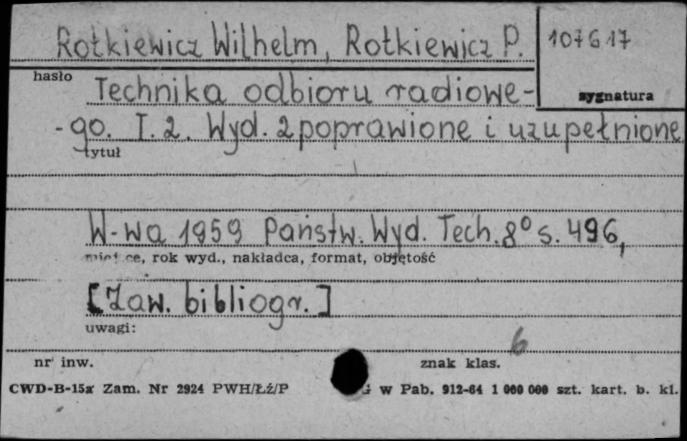 Rotkiewicz Wilhelm, Rotkiewicz P.
107617
hasło
sygnatura
Technika odbioru radiowe-
-go. T. 2. Wyd. 2 poprawione i uzupełnione
tytuł
W-wa 1959 Państw. Wyd. Tech. 8° s. 496,
miejsce, rok wyd., nakładca, format, objętość
[Zaw. bibliogr.]
uwagi:
6
nr inw.
znak klas.
CWD-B-15a Zam. Nr 2924 PWH/Łź/P
w Pab. 912-64 1 000 000 szt. kart. b. kl.